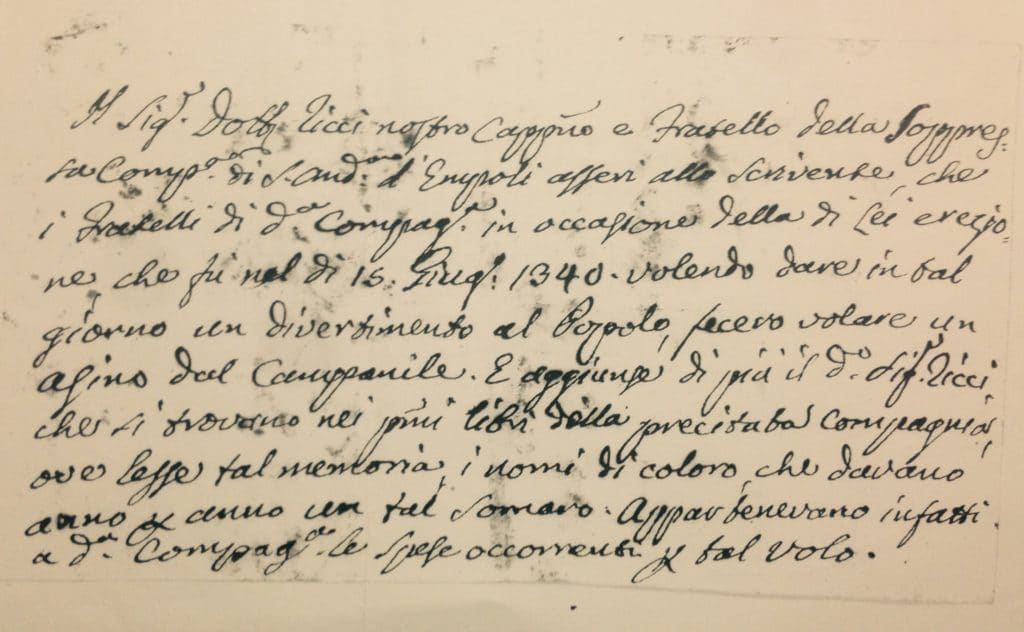 Il Sig.r Dott. Ricci nostro Capp.no e Fratello della Soppres-
sa Comp.a di S. And.a d'Empoli asserì allo scrivente, che
i Fratelli di d.a Compag.a in occasione della di Lei erezio-
ne che fù nel dì 15. Giug.o 1340. volendo dare in tal
giorno un divertimento al Popolo, fecero volare un
asino dal Campanile. E aggiunse di più il d.o Sig.r Ricci
che si trovano nei p.mi libri della precitata Compagnia,
ove lesse tal memoria, i nomi di coloro, che davano
anno p anno un tal somaro. Appartenevano infatti
a d.a Compag.a le spese occorrenti p tal volo.